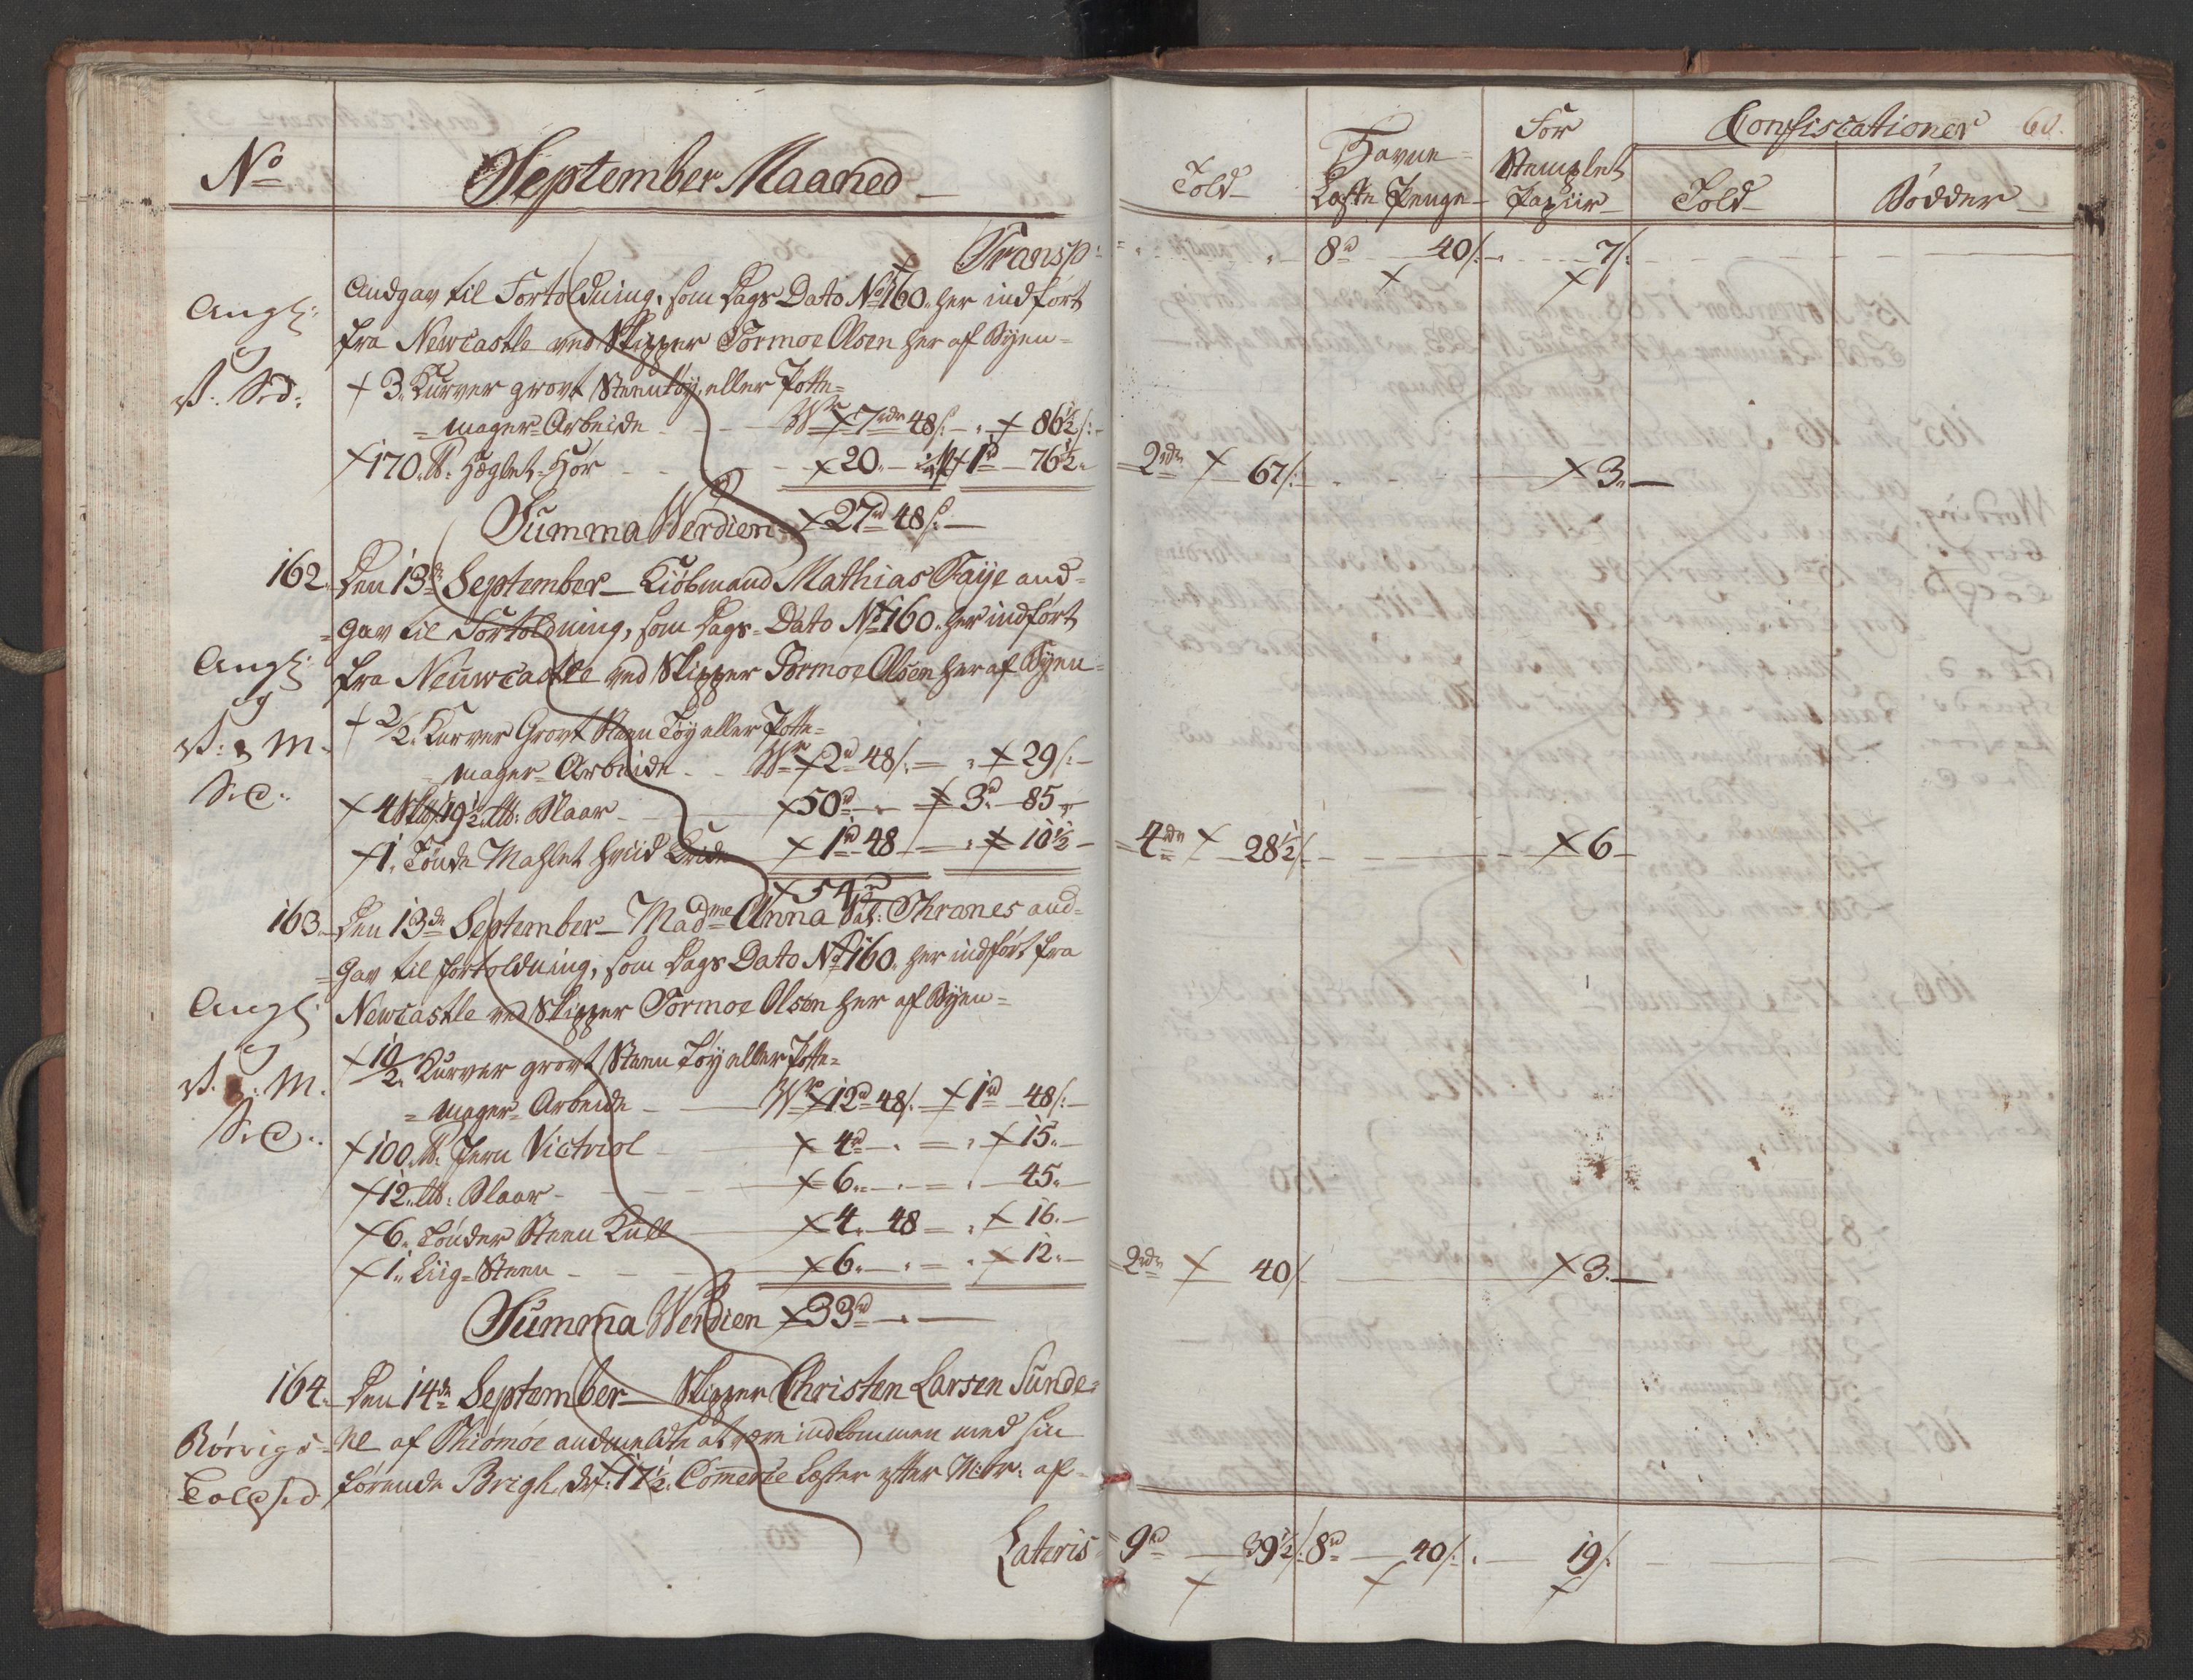 No
September Maaned
Transp:
Andgav til Fortoldning, som Dags Dato No 160. her indført
fra Newcastle ved Skipper Tormoe Olsen her af Byen
Angl:
og
3. Kurver grovt Steentøy, eller Potte=
=mager=Arbeide Wr 7rdr 48/: 86½/:
170. lb: Heglet=Hør 20. 1rd 76½.
Summa Werdien 27rd 48/:
162. Den 13de September Kiøbmand Mathias Faye and=
=gav til Fortoldning, som Dags=Dato No 160. her indført
fra Neuwcastle ved Skipper Tormoe Olsen her af Byen
Angl:
og
2/2. Kurver Grovt Steen Tøy eller Potte=
=mager=Arbeide Wr 2rd 48/: 29/:
4 Skb 19½ lb: Blaar 50rd 3rd 85
1. Tønde Mahlet hvid Kride 1rd 48 10½
54rd
163. Den 13de September Madme Anna Sal: Thranes and=
=gav til fortoldning, som Dags Dato No 160. her indført fra
Newcastle ved Skipper Tormoe Olsen her af Byen=
Angl:
og
10/2. Kurver grovt Steen Tøy eller Potte=
=mager=Arbeide Wr 12rd 48/: 1rd 48/:
100. lb: Jern Victriol 4rd 15.
12. lb: Blaar 6. 45.
6. Tønder Steen Kull 4. 48 16.
1. Liig=Steen 6. 12.
Summa Werdien 33rd
164. Den 14de September Skipper Christen Larsen Sunde=
=ne af Thiömöe andmeldte at være indkommen med sin
førende Brigh, dr: 17½. Comerce Læster efter M:br: af=
Rörvigs
Tolds:d
Lateris
60.
Told
Havne=
Læste Penge
For
Stemplet
Papiir
Confiscationer
Told
Bödder
8rd 40/: 7/:
2rdr 67/: 3.
4rdr 28½/: 6
2rdr 40/ 3.
9rd 39½/: 8rd 40/: 19/: